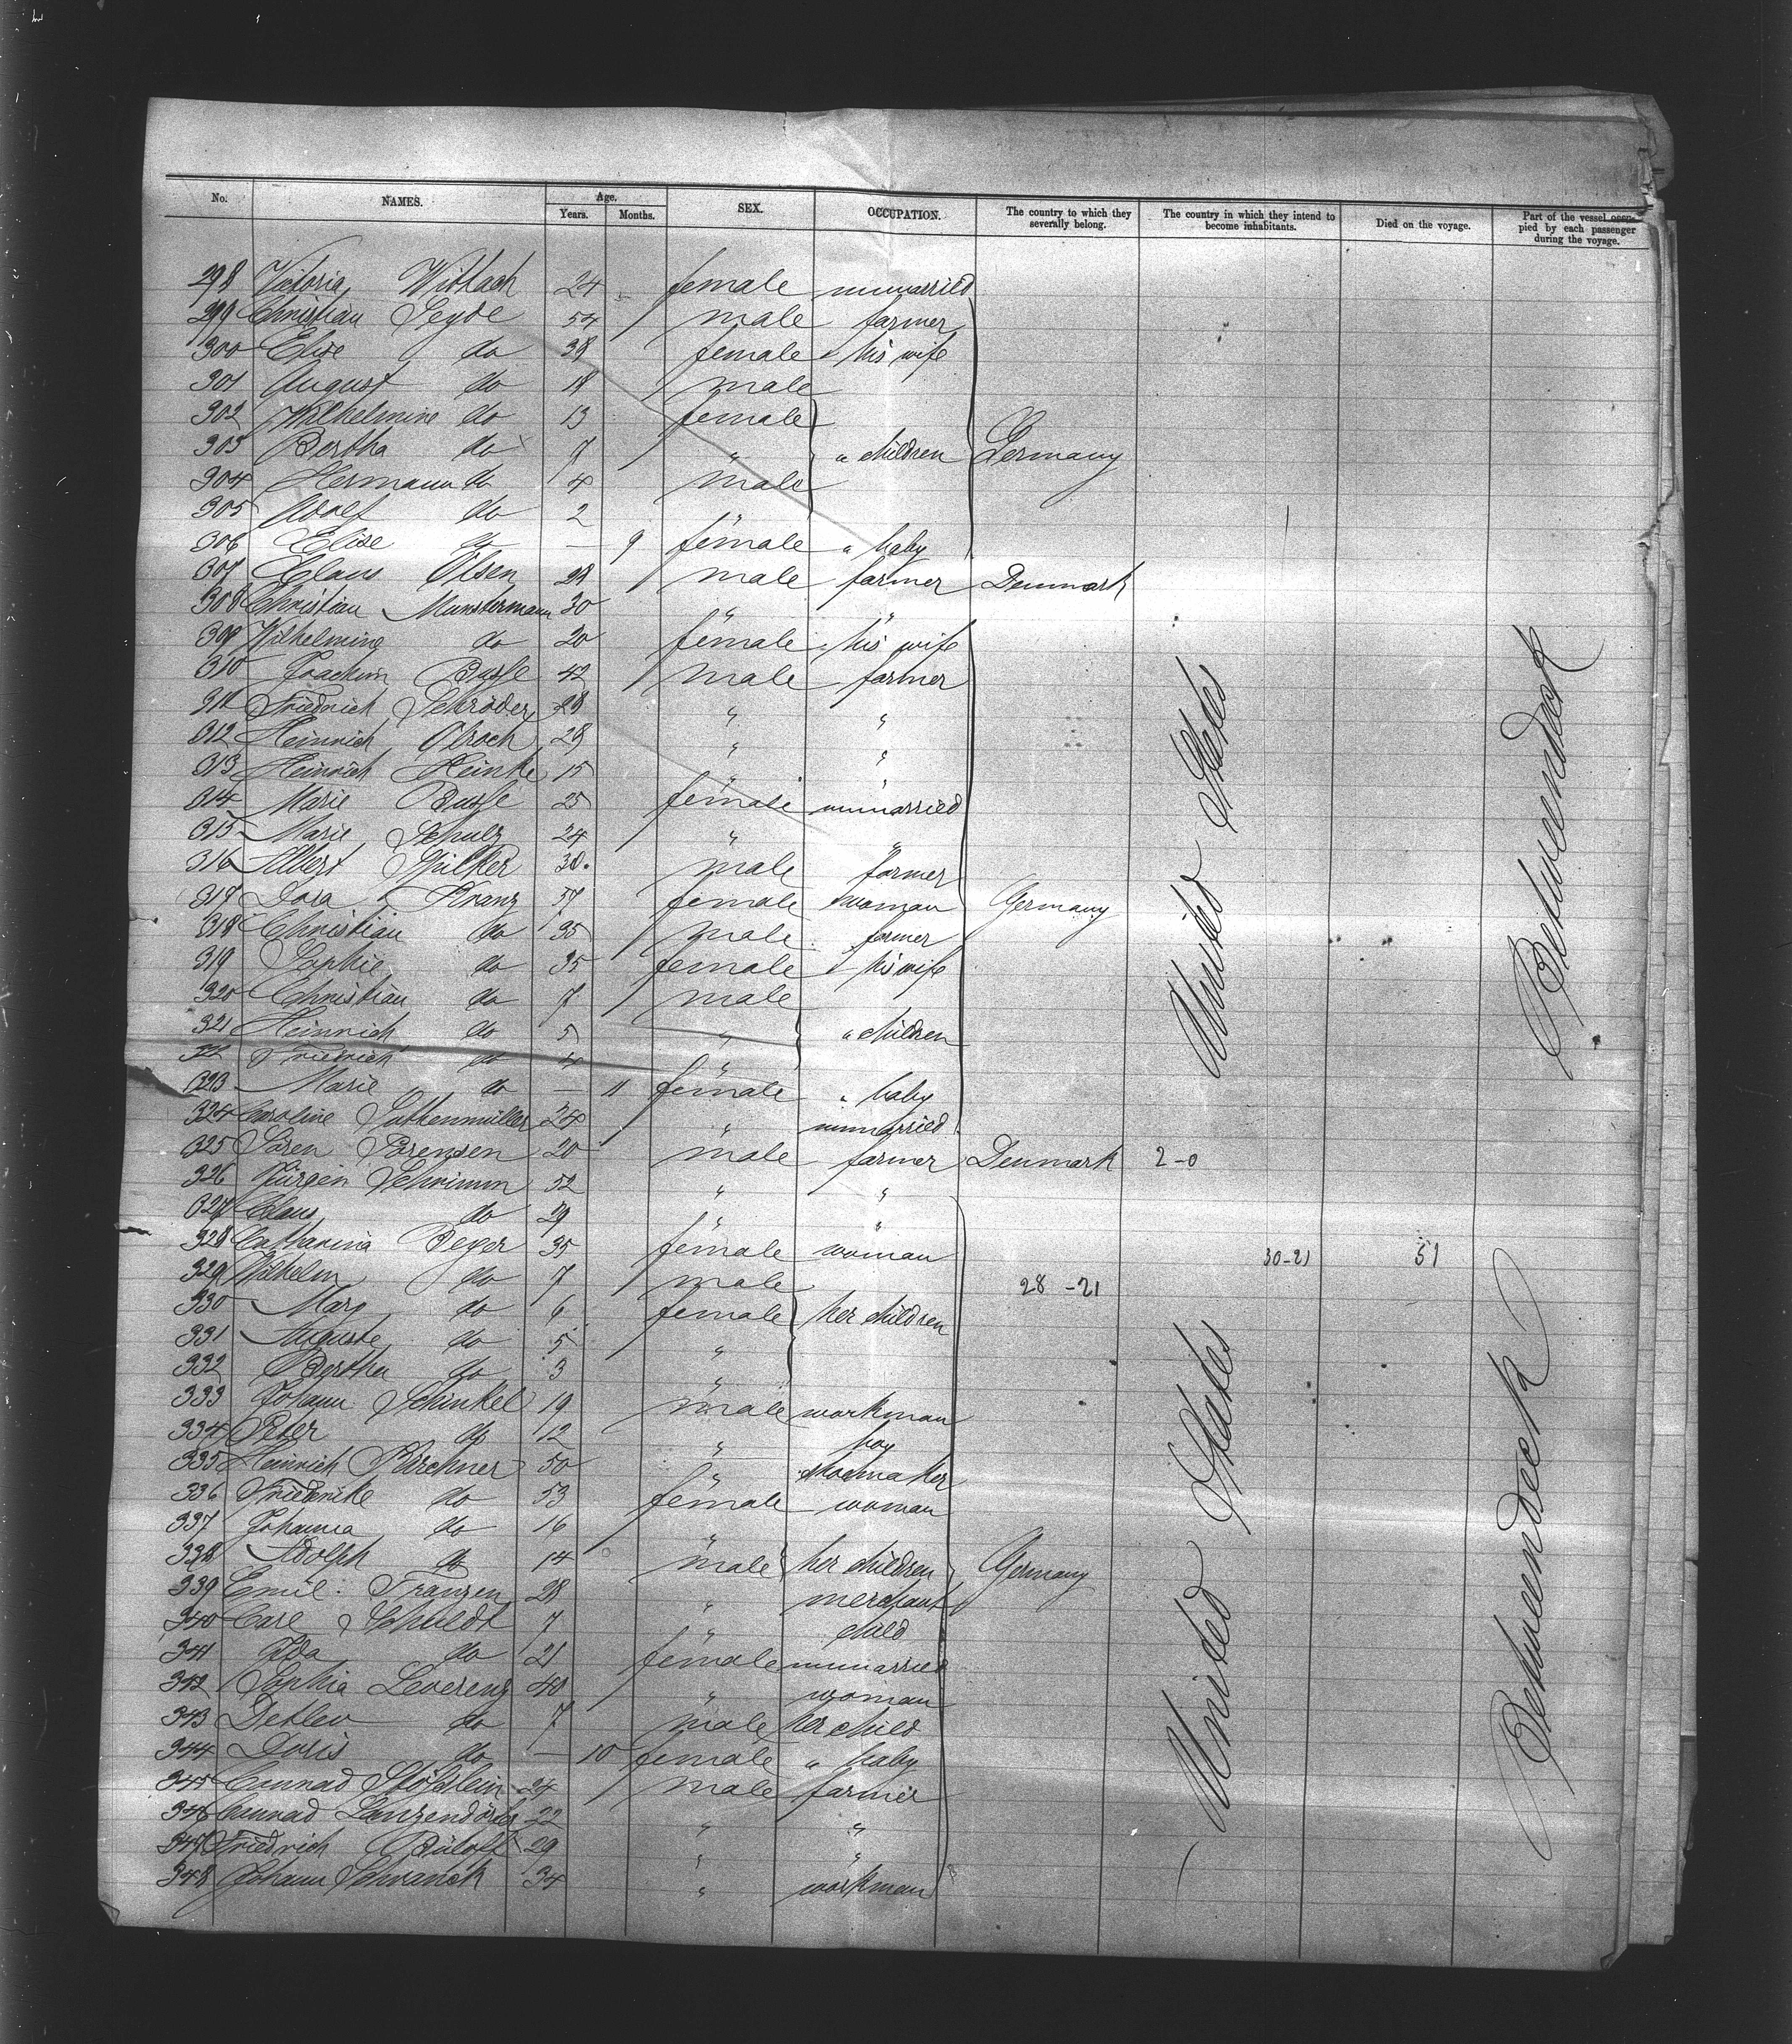 No. NAMES. Age. Years. Months. SEX. OCCUPATION. The country to which they severally belong. The country in which they intend to become inhabitants. Died on the voyage. Part of the vessel occupied by each passenger during the voyage.
298 Victoria Wittach 24 female unmarried
299 Christian Seyde 54 male farmer
300 Elise do 38 female his wife
301 August do 18 male
302 Wilhelmine do 13 female
303 Bertha do 9 " " children Germany
304 Hermann do 4 male
305 Adolf do 2 "
306 Elise do — 9 female " baby
307 Claus Olsen 28 male farmer Denmark
308 Christian Munstermann 30 " "
309 Wilhelmine do 20 female his wife
310 Joachim Busse 42 male farmer
311 Friedrich Schröder 28 " "
312 Heinrich Olroch 28 " "
313 Heinrich Reinke 15 " "
314 Marie Busse 25 female unmarried
315 Marie Schulz 24 " "
316 Albert 30 male farmer
317 Dora Kranz 57 female woman Germany
318 Christian do 35 male farmer
319 Sophie do 35 female his wife
320 Christian do 7 male
321 Heinrich do 5 " " children
322 Friedrich do 4 "
323 Marie do — 11 female " baby
324 Caroline 24 " unmarried
325 Sören Sörensen 20 male farmer Denmark 2-0
326 Jürgen Schrimm 52 " "
327 Claus do 29 " "
328 Catharina Beyer 35 female woman 30-21 51
329 Wilhelm do 7 male 28-21
330 Mary do 6 female her children
331 Auguste do 5 "
332 Bertha do 3 "
333 Johann Schinkel 19 male workman
334 Peter do 12 " boy
335 Heinrich Kirchner 50 " shoemaker
336 Friederike do 53 female woman
337 Johanna do 16 "
338 Adolph do 14 male her children Germany
339 Emil Franzen 28 " merchant
340 Carl Schuldt 7 " child
341 Ida do 21 female unmarried
342 Sophia Leverenz 40 " woman
343 Detlev do 7 male her child
344 Doris do — 10 female " baby
345 Conrad 24 male farmer
346 Conrad Lanzendörfer 22 " "
347 Friedrich Büloff 29 " "
348 Johann Schwanck 34 " workman
United States
United States
Betweendeck
Betweendeck